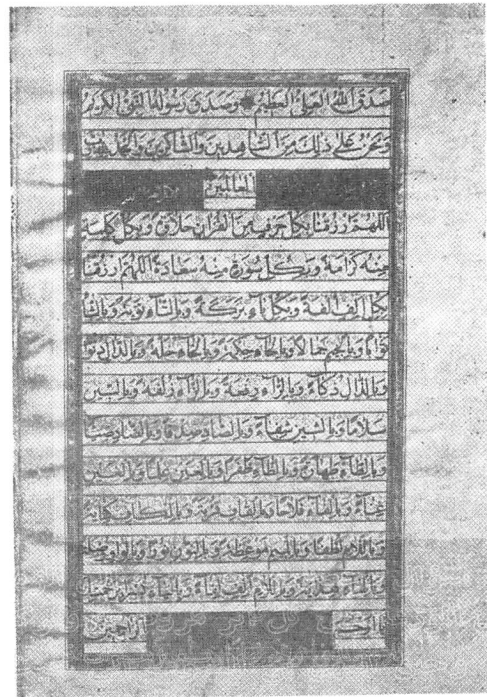 صدق الله العلي العظيم وصدق رسوله النبي الكريم
ونحن على ذلك من الشاهدين والشاكرين والحمد لله رب
العالمين
اللهم ارزقنا بكل حرف من القرآن حلاوة وبكل كلمة
منه كرامة وبكل سورة منه سعادة اللهم ارزقنا
بكل الف الفة وبكل باء بركة وبالتاء توبة وبالثاء
ثوابا وبالجيم جمالا وبالحاء حكمة وبالخاء خلة وبالدال
وبالذال ذكاء وبالراء رفعة وبالزاء زلفة وبالسين
سلاما وبالشين شفاء وبالصاد صدقا وبالضاد ضياء
وبالطاء طهارة وبالظاء ظفرا وبالعين علما وبالغين
غناء وبالفاء فلاحا وبالقاف قربة وبالكاف كفاية
وباللام لطفا وبالميم موعظة وبالنون نورا وبالواو وصلة
وبالهاء هداية وبلام الف لقاء وبالياء
يا ارحم الراحمين